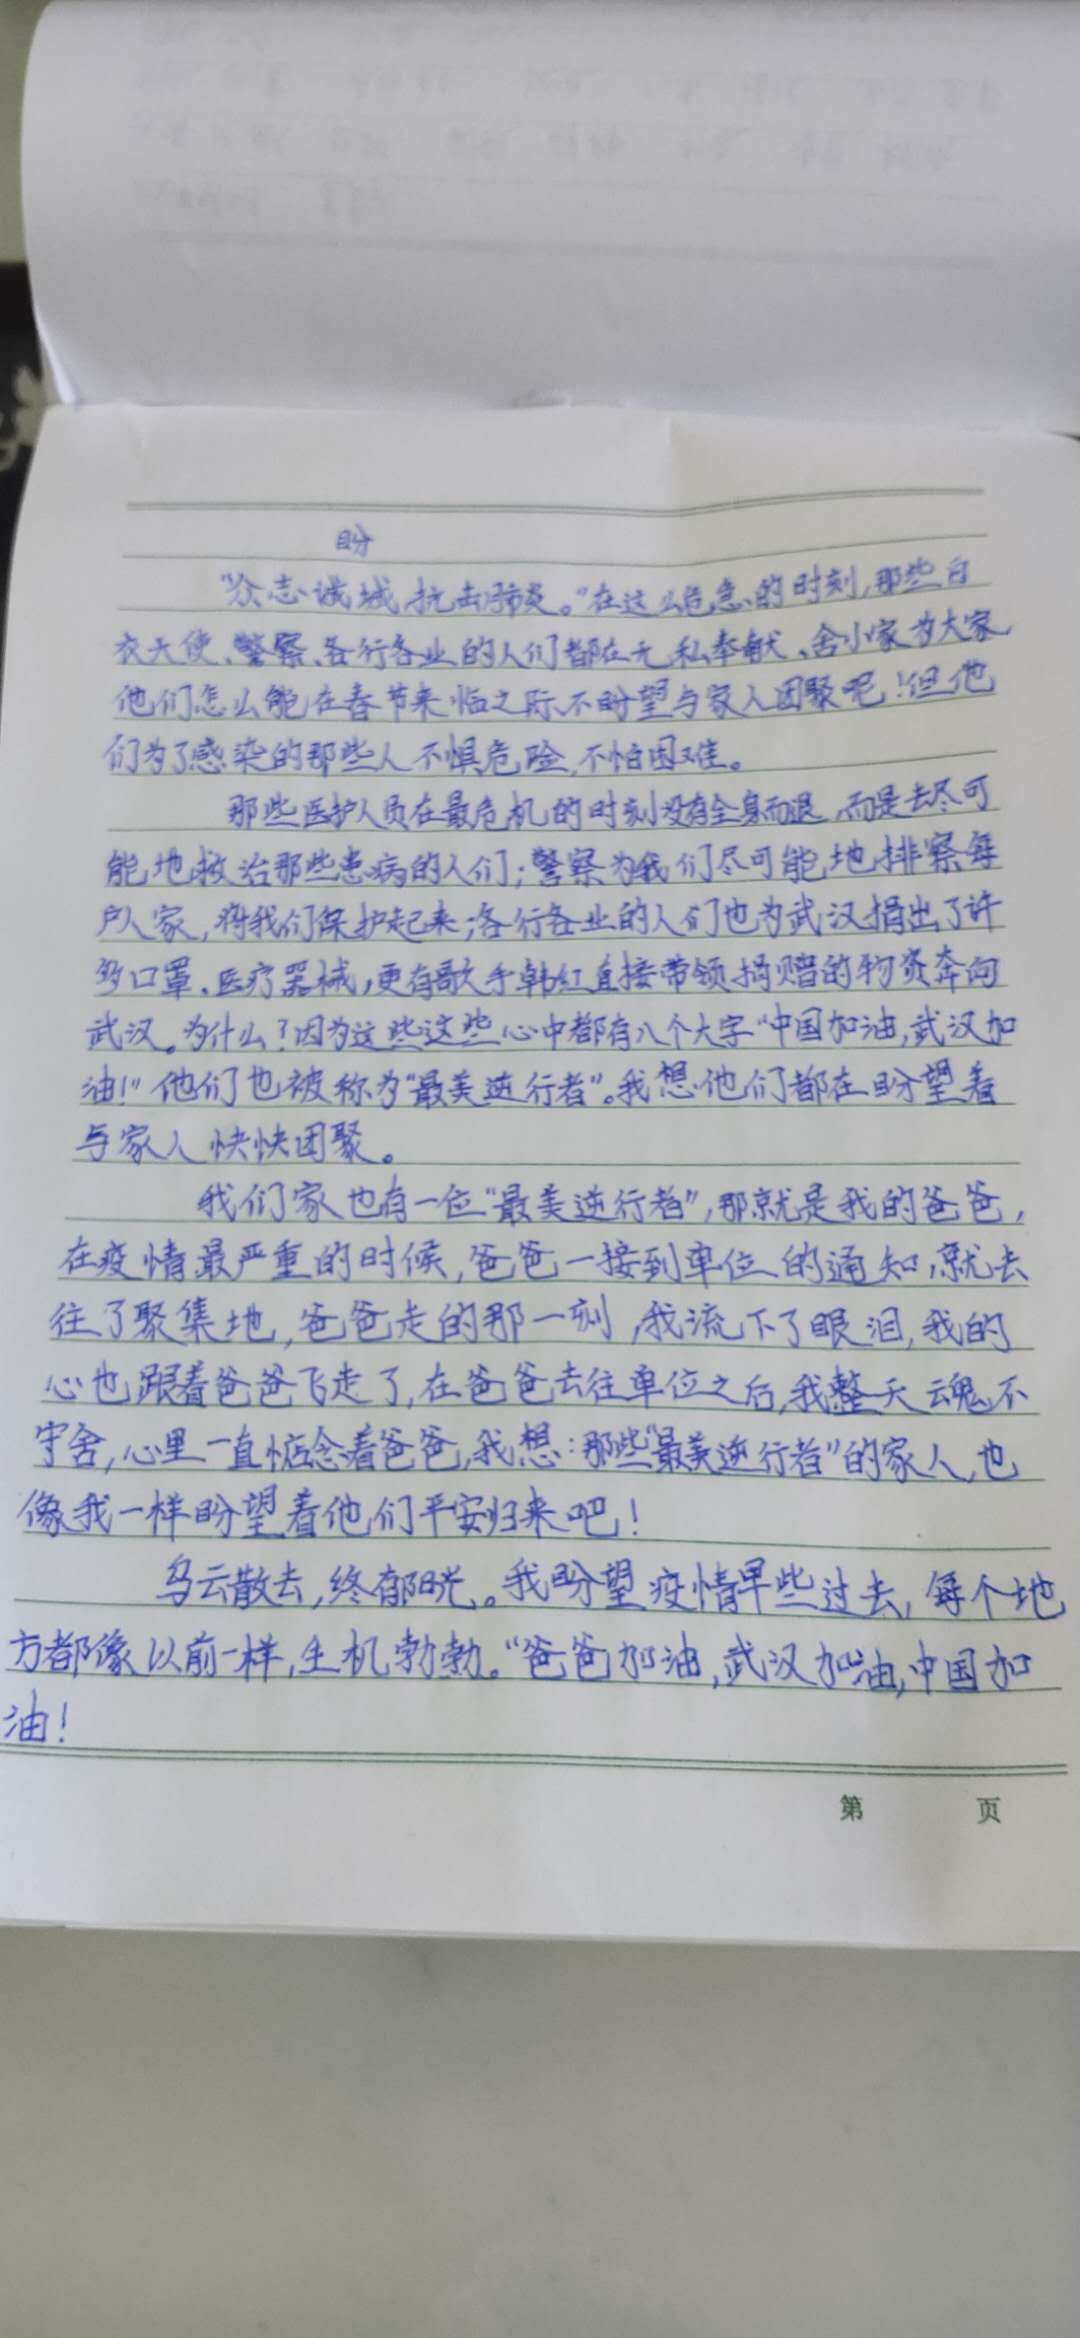 盼
“众志诚城,抗击肺炎。”在这么危急的时刻,那些白
衣天使、警察、各行各业的人们都在无私奉献、舍小家为大家
他们怎么能在春节来临之际不盼望与家人团聚呢!但他
们为了感染的那些人不惧危险,不怕困难。
那些医护人员在最危机的时刻没有全身而退,而是去尽可
能地救治那些患病的人们;警察为我们尽可能地排察每
户人家,将我们保护起来;各行各业的人们也为武汉捐出了许
多口罩、医疗器械,更有歌手韩红直接带领捐赠的物资奔向
武汉。为什么?因为这些这些心中都有八个大字“中国加油,武汉加
油!”他们也被称为“最美逆行者”。我想他们都在盼望着
与家人快快团聚。
我们家也有一位“最美逆行者”,那就是我的爸爸,
在疫情最严重的时候,爸爸一接到单位的通知,就去
往了聚集地,爸爸走的那一刻,我流下了眼泪,我的
心也跟着爸爸飞走了,在爸爸去往单位之后,我整天魂不
守舍,心里一直惦念着爸爸,我想:那些“最美逆行者”的家人,也
像我一样盼望着他们平安归来吧!
乌云散去,终有阳光。我盼望疫情早些过去,每个地
方都像以前一样,生机勃勃。“爸爸加油,武汉加油,中国加
油!
第 页